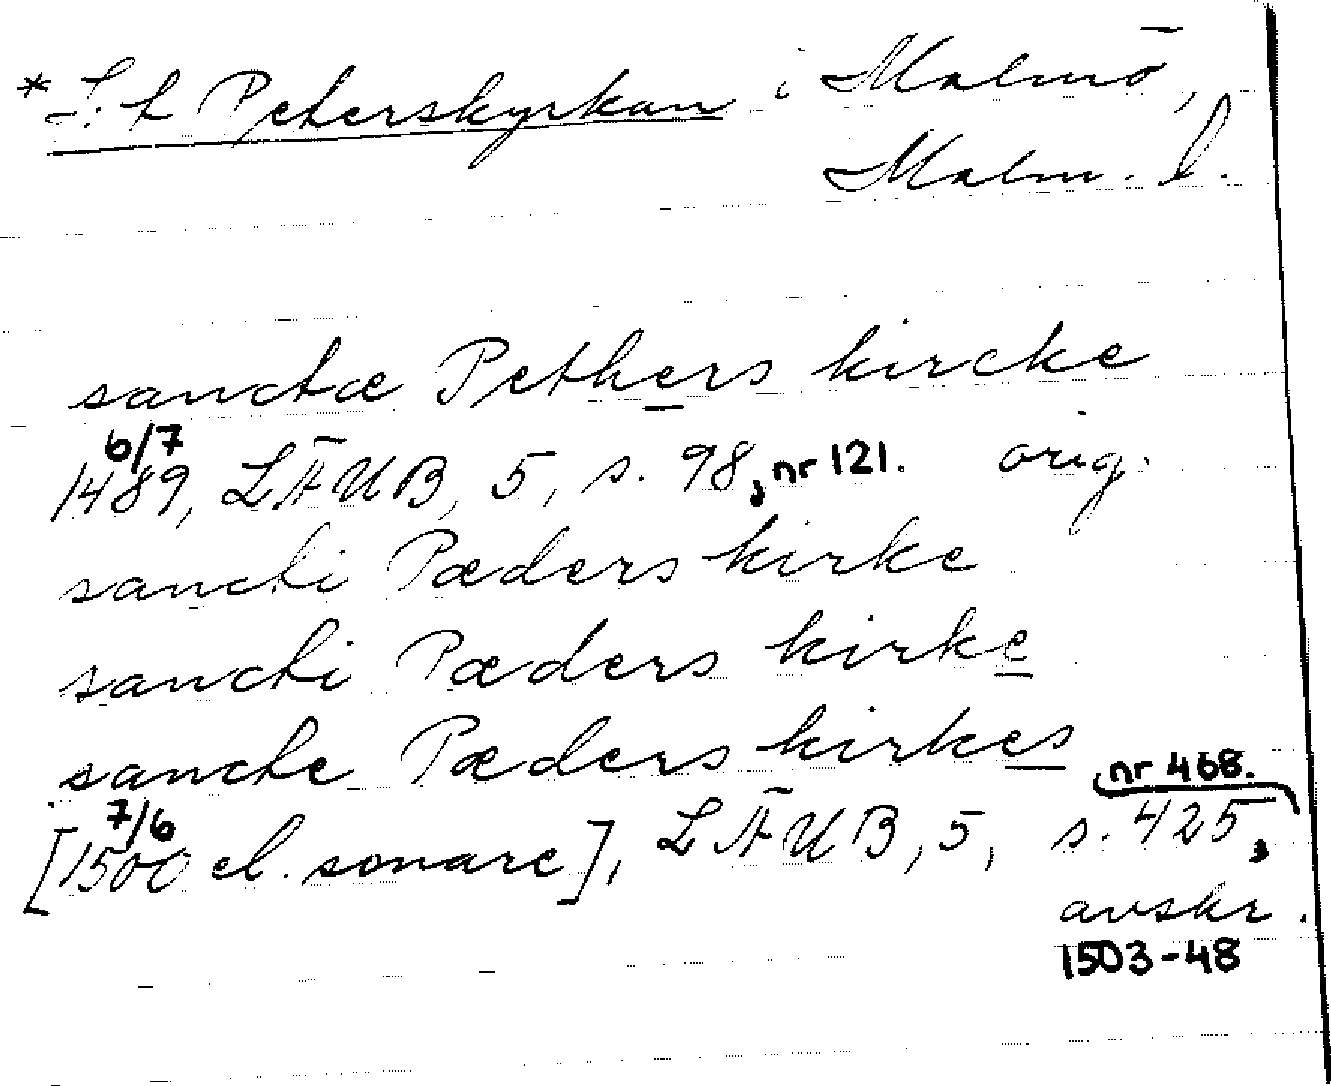 *S:t Peterskyrkan i Malmö,
Malm. l.
sanctæ Pethers kircke
6/7
1489, LÄUB, 5, s. 98, nr 121. orig.
sancti Pæders kirke
sancti Pæders kirke
sancte Pæders kirkes
7/6 nr 468.
[1500 el. senare], LÄUB, 5, s. 425,
avskr.
1503-48